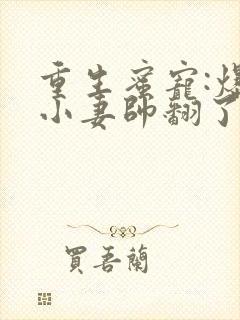 重生蜜寵:爆
小妻帥翻了
買吾蘭